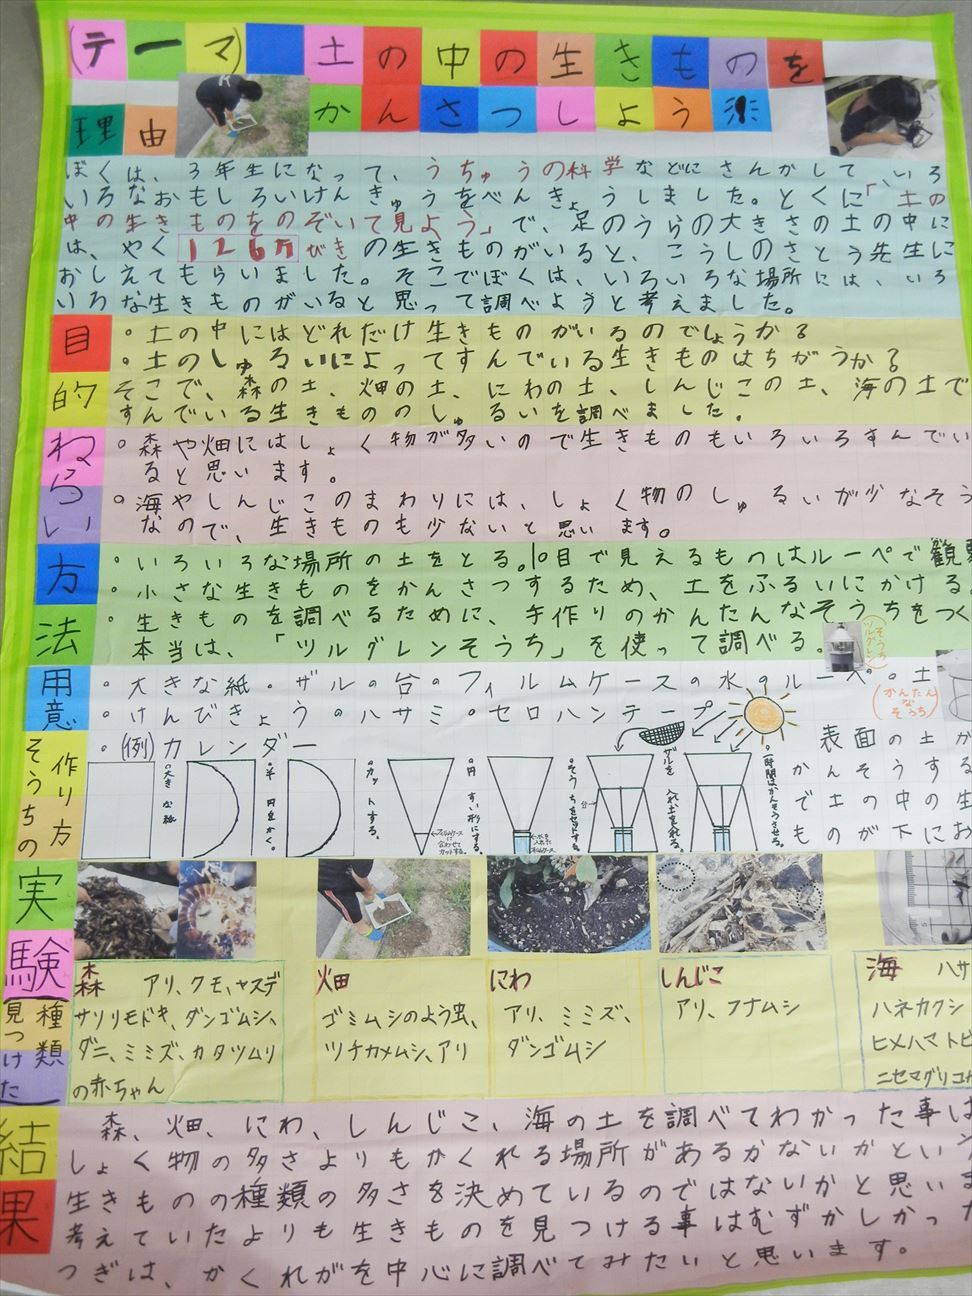 (テーマ) 土の中の生きものを
かんさつしよう
理由
ぼくは、3年生になって、うちゅうの科学などにさんかして、いろ
いろなおもしろいけんきゅうをべんきょうしました。とくに「土の
中の生きものをのぞいて見よう」で、足のうらの大きさの土の中に
は、やく126万びきの生きものがいると、こうしのさとう先生に
おしえてもらいました。そこでぼくは、いろいろな場所には、いろ
いろな生きものがいると思って調べようと考えました。
目的
・土の中にはどれだけ生きものがいるのでしょうか?
・土のしゅるいによってすんでいる生きものはちがうか?
そこで、森の土、畑の土、にわの土、しんじこの土、海の土で
すんでいる生きもののしゅるいを調べました。
ねらい
・森や畑にはしょく物が多いので生きものもいろいろすんでい
ると思います。
・海やしんじこのまわりには、しょく物のしゅるいが少なそう
なので、生きものも少ないと思います。
方法
・いろいろな場所の土をとる。・目で見えるものはルーペで観察
・小さな生きものをかんさつするため、土をふるいにかける。
・生きものを調べるために、手作りのかんたんなそうちをつく
本当は、「ツルグレンそうち」を使って調べる。
(ツルグレンそうち)
用意
・大きな紙・ザル・台・フィルムケース・水・ルーペ・土
・けんびきょう・ハサミ・セロハンテープ
(かんたんなそうち)
そうちの作り方
・(例)カレンダー
・大きな紙
・半円をかく。
・カットする。
←フィルムケースに合わせてカットする。
・円すい形にする。
←水を入れたフィルムケース
・そうちをセットする。
台→
ザルを入れ土を入れる。
表面の土か
かんそうする
で土の中の生
ものが下にお
実験
見つけた種類
森
アリ、クモ、ヤスデ
サソリモドキ、ダンゴムシ、
ダニ、ミミズ、カタツムリ
の赤ちゃん
畑
ゴミムシのよう虫、
ツチカメムシ、アリ
にわ
アリ、ミミズ、
ダンゴムシ
しんじこ
アリ、フナムシ
海
ハサ
ハネカクシ
ヒメハマトビ
ニセマグソコガ
結果
森、畑、にわ、しんじこ、海の土を調べてわかった事は
しょく物の多さよりもかくれる場所があるかないかという
生きものの種類の多さを決めているのではないかと思いま
考えていたよりも生きものを見つける事はむずかしかった
つぎは、かくれがを中心に調べてみたいと思います。